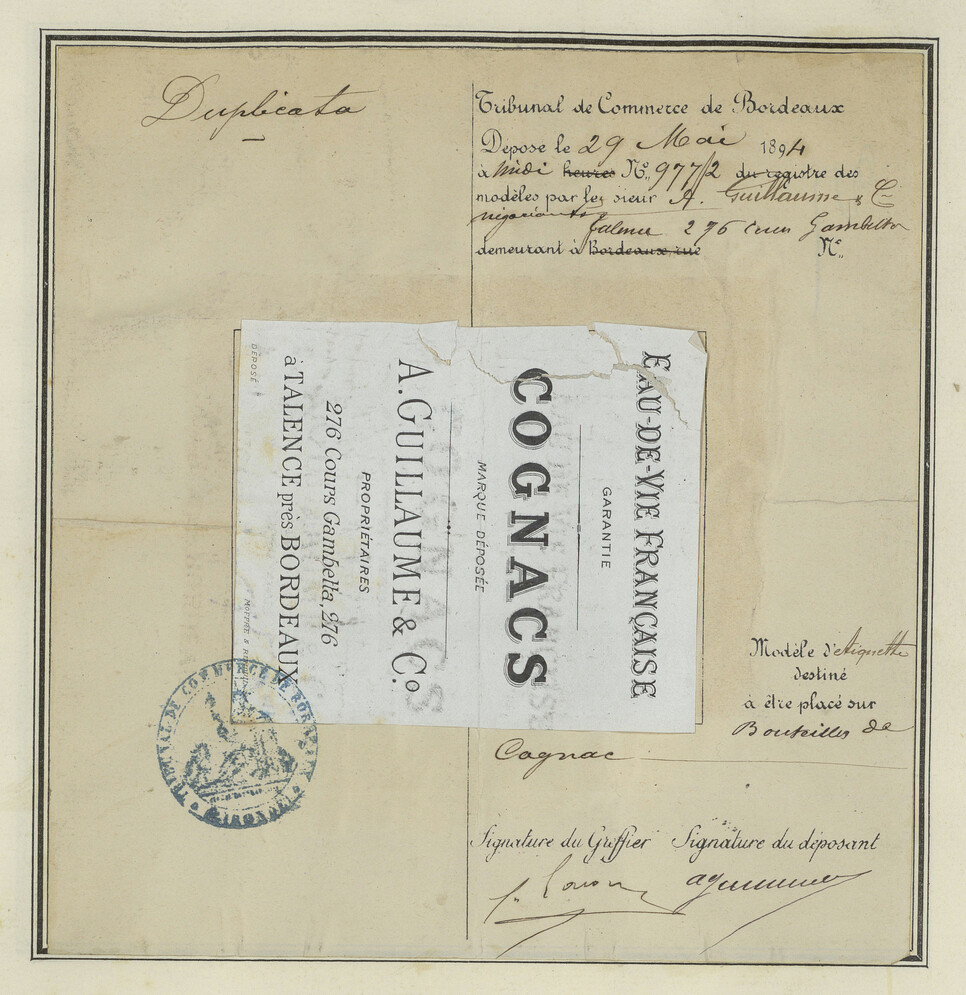 Duplicata
Tribunal de Commerce de Bordeaux
Déposé le 29 Mai 1894
à midi heures No. 977/2 du registre des
modèles par les sieur A. Guillaume & Cie
négociants
Talence 276 cours Gambetta
demeurant à Bordeaux, rue No.
EAU-DE-VIE FRANÇAISE
GARANTIE
COGNACS
MARQUE DÉPOSÉE
A. GUILLAUME & Co
PROPRIÉTAIRES
276 Cours Gambetta, 276
à TALENCE près BORDEAUX
DÉPOSÉ
Modèle d'étiquette
destiné
à être placé sur
Bouteilles de
Cognac
TRIBUNAL DE COMMERCE DE BORDEAUX
(GIRONDE)
Signature du Greffier Signature du déposant